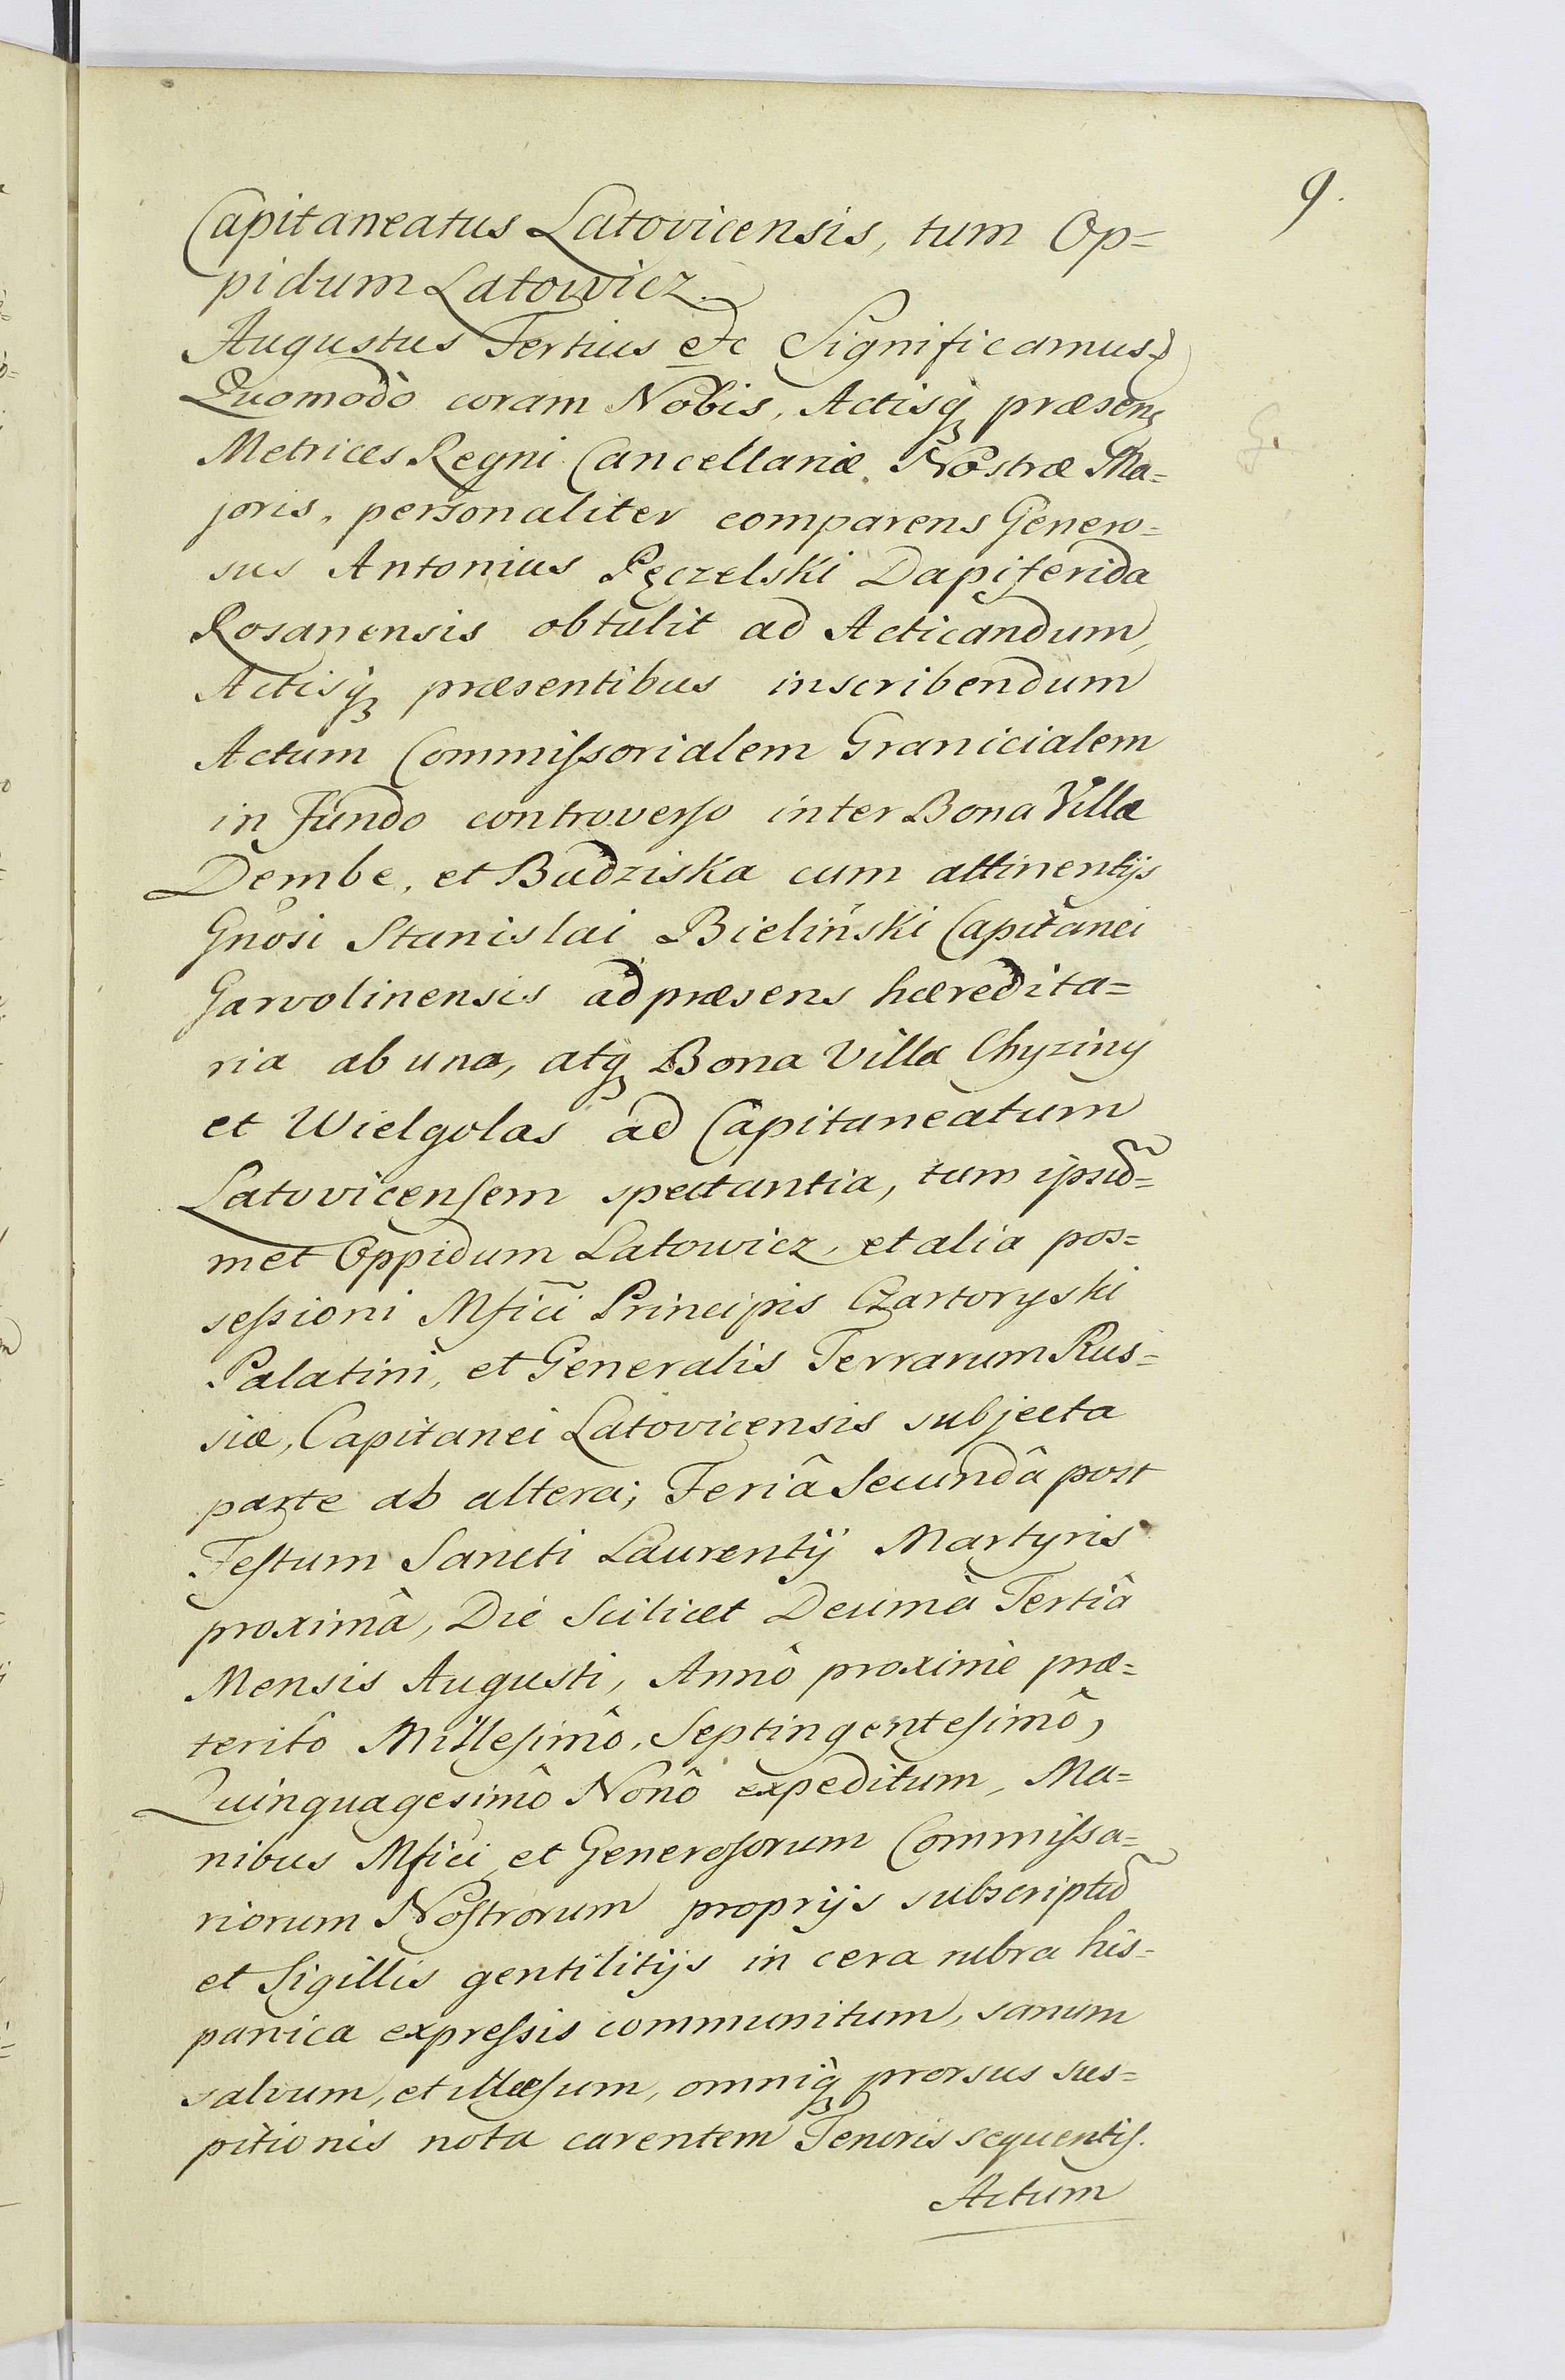 9.
Capitaneatus Latovicensis, tum Op=
pidum Latowicz.
Augustus Tertius etc Significamus
Quomodò coram Nobis, Actisq3 præsens
Metrices Regni Cancellariæ Nostræ Ma=
joris, personaliter comparens Genero=
sus Antonius Pęczelski Dapiferida
Rosanensis obtulit ad Acticandum,
Actisq3 præsentibus inscribendum
Actum Commiſsorialem Granicialem
in fundo controverſo inter Bona Villæ
Dembe, et Budziska cum attinentijs
Gnosi Stanislai Bieliński Capitanei
Garvolinensis ad præsens hæredita=
ria ab una, atq3 Bona Villæ Chyziny
et Wielgolas ad Capitaneatum
Latovicenſem spectantia, tum ipsũd=
met Oppidum Latowicz, et alia pos=
seſsioni Mfici Principis Czartoryski
Palatini, et Generalis Terrarum Rus=
siæ, Capitanei Latovicensis subjecta
parte ab altera; Feriâ Secundâ post
Feſtum Sancti Laurentij Martyris
proximâ, Die Scilicet Decimâ Tertiâ
Mensis Augusti, Annô proximè præ=
teritô Milleſimô, Septingenteſimô,
Quinquagesimô Nonô expeditum, Ma=
nibus Mfici et Generoſorum Commiſsa=
riorum Noſtrorum proprijs subscriptũ
et Sigillis gentilitijs in cera rubra his=
panica expreſsis communitum, sanum
salvum, et illæſum, omniq3 prorsus sus=
pitionis nota carentem Tenoris sequentiſ.
Actum